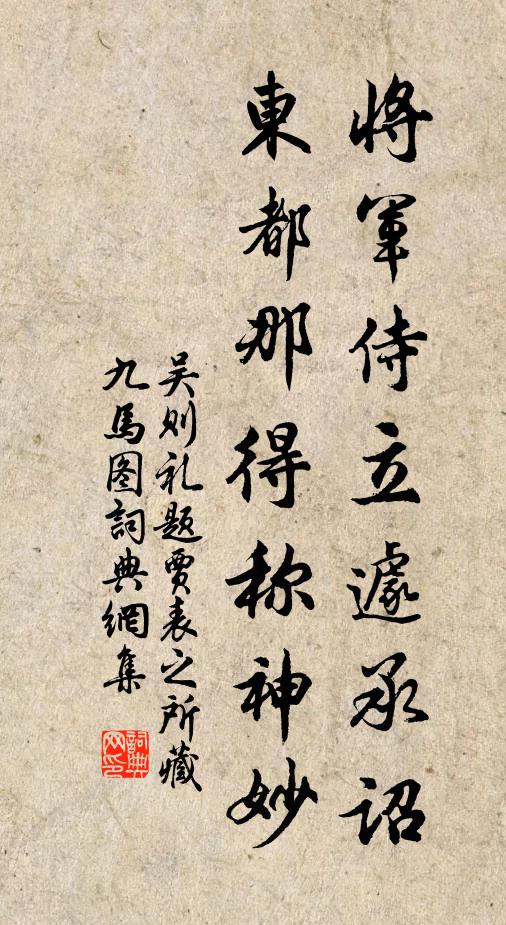 將軍侍立遽承詔
東都那得称神妙
吴则礼题贾表之所藏
九馬图詞典網集
詞典网印